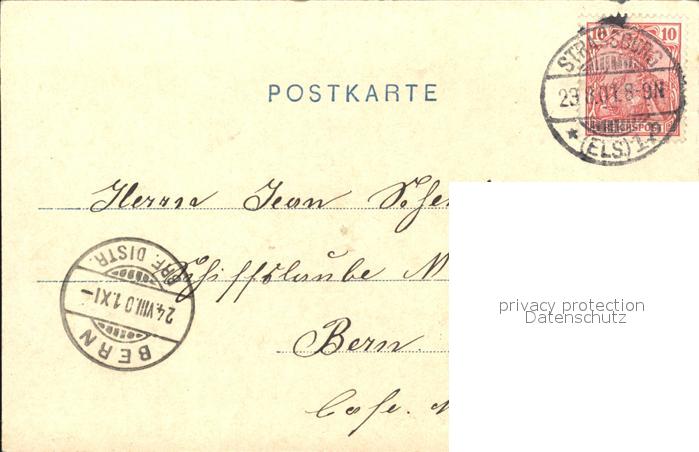 10 10
STRASSBURG
23 8.01.8-9N
* (ELS) 1.P
REICHSPOST
POSTKARTE
Herrn Jean
Schifflaube
Bern
Cafe.
BRF. DISTR.
24.VIII.01.XI-
BERN
privacy protection
Datenschutz